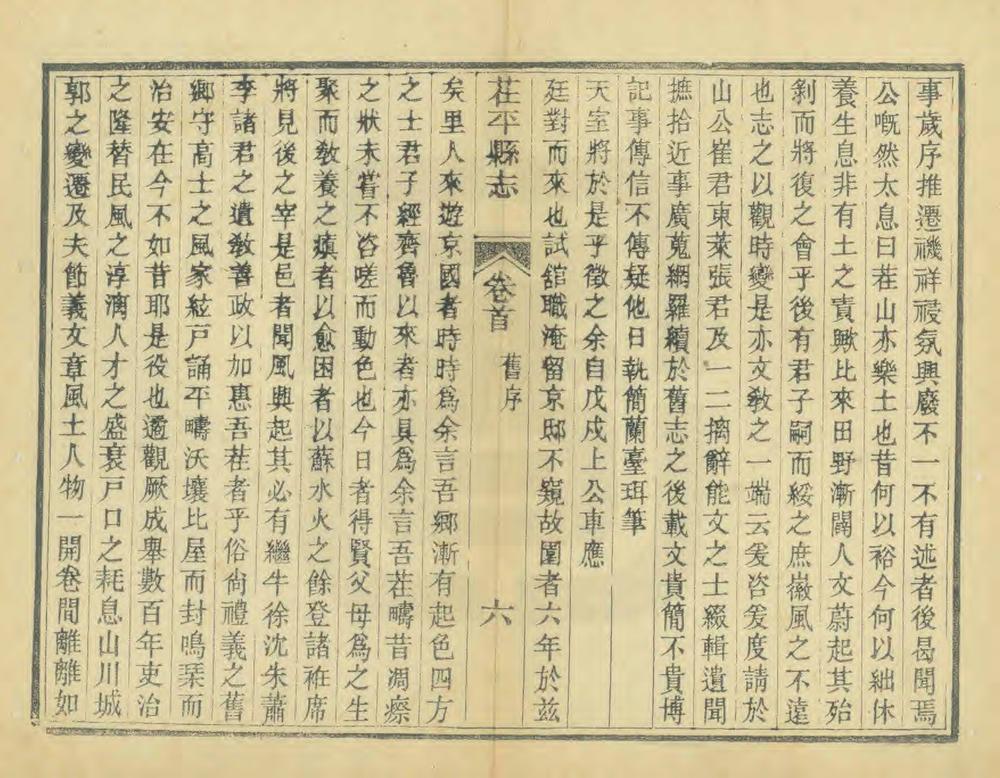 事歲序推遷禨祥祲氛興廢不一不有述者後曷聞焉
公嘅然太息曰茬山亦樂土也昔何以裕今何以絀休
養生息非有土之責歟比來田野漸闢人文蔚起其殆
剝而將復之會乎後有君子嗣而綏之庶徽風之不遠
也志之以觀時變是亦文敎之一端云爰咨爰度請於
山公崔君東萊張君及一二摛辭能文之士綴輯遺聞
摭拾近事廣蒐網羅續於舊志之後載文貴簡不貴博
記事傳信不傳疑他日執簡蘭臺珥筆
天室將於是乎徵之余自戊戌上公車應
廷對而來也試舘職淹留京邸不窺故園者六年於玆
茌平縣志
卷首
舊序
六
矣里人來遊京國者時時爲余言吾鄉漸有起色四方
之士君子經齊魯以來者亦具爲余言吾茬疇昔凋瘵
之狀未嘗不咨嗟而動色也今日者得賢父母爲之生
聚而敎養之瘨者以愈困者以蘇水火之餘登諸袵席
將見後之宰是邑者聞風興起其必有繼牛徐沈朱蕭
李諸君之遺敎善政以加惠吾茬者乎俗尙禮義之舊
鄉守高士之風家絃戶誦平疇沃壤比屋而封鳴琹而
治安在今不如昔耶是役也遹觀厥成舉數百年吏治
之隆替民風之淳漓人才之盛衰戶口之耗息山川城
郭之變遷及夫節義文章風土人物一開卷間離離如